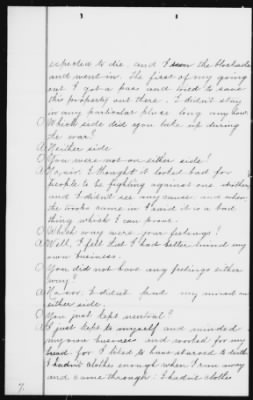 expected to die, and I run the blockade
and went in. The first of my going
out I got a pass and tried to save
this property out there. I didn't stay
in any particular place long any how.
Q Which side did you take up during
the war?
A Neither side
Q You were not on either side?
A No, sir. I thought it looked bad for
people to be fighting against one another
and I didn't see any cause and when
the works came in I said it is a bad
thing which I can prove.
Q Which way were your feelings?
A Well, I felt that I had better mind my
own business.
Q You did not have any feelings either
way?
A No, sir. I didn't my mind on
either side.
Q You just kept neutral?
A I just kept to myself and minded
my own business and worked for my
bread for I liked to have starved to death
I hadn't clothes enough when I run away
and came through. I hadn't clothes
7.